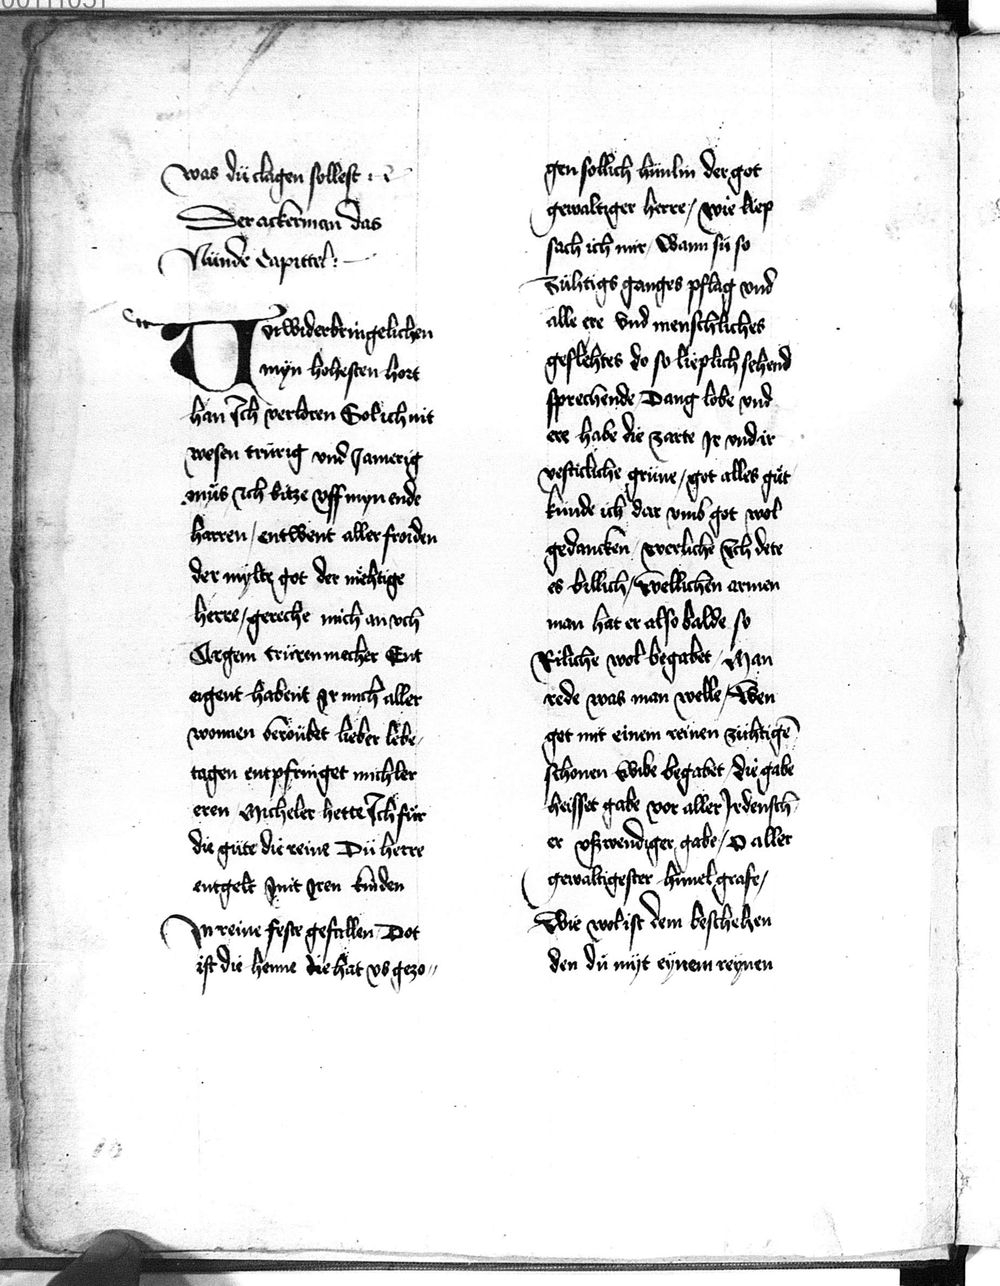 was dü clagen sollest
Der ackerman das
Nünde Capittel
Unwiderbringelichen
myn hohesten hort
han Ich verloren Sol ich nit
wesen trürig vnd Jamerig
müs ich bitze vff myn ende
harren / entwent aller froiden
der mylte got der mehtige
herre / gereche mich an vch
Argem trüren mecher Ent
eigent habent Ir mich aller
wonnen beroübet lieber lebe
tagen entpfringet michler
eren Micheler hette Ich für
die güte die reine Dü herre
entgelt mit Iren kinden
In reine feste gefallen Dot
ist die henne die hat vs gezo
gen sollich hünlin der got
gewaltiger herre / wie liep
sach ich mir / Wann sü so
zühtigs ganges pflag vnd
alle ere vnd menschliches
geslehtes do so lieplich sehend
sprechende Dang lobe vnd
ere habe die zarte Ir vnd ir
grüne / got alles güt
künde ich dar vmb got wol
gedancken / werliche Ich dete
es billich / Wellichen armen
man hat er also balde so
Riliche wol begabet / Man
rede was man welle / Wen
got mit einem reinen zühtigē
schonen wibe begabet / die gabe
heisset gabe vor aller Irdensch
er vszwendiger gabe / O aller
gewaltigester himel grafe /
Wie wol ist dem beschehen
den dü myt eynem reynen